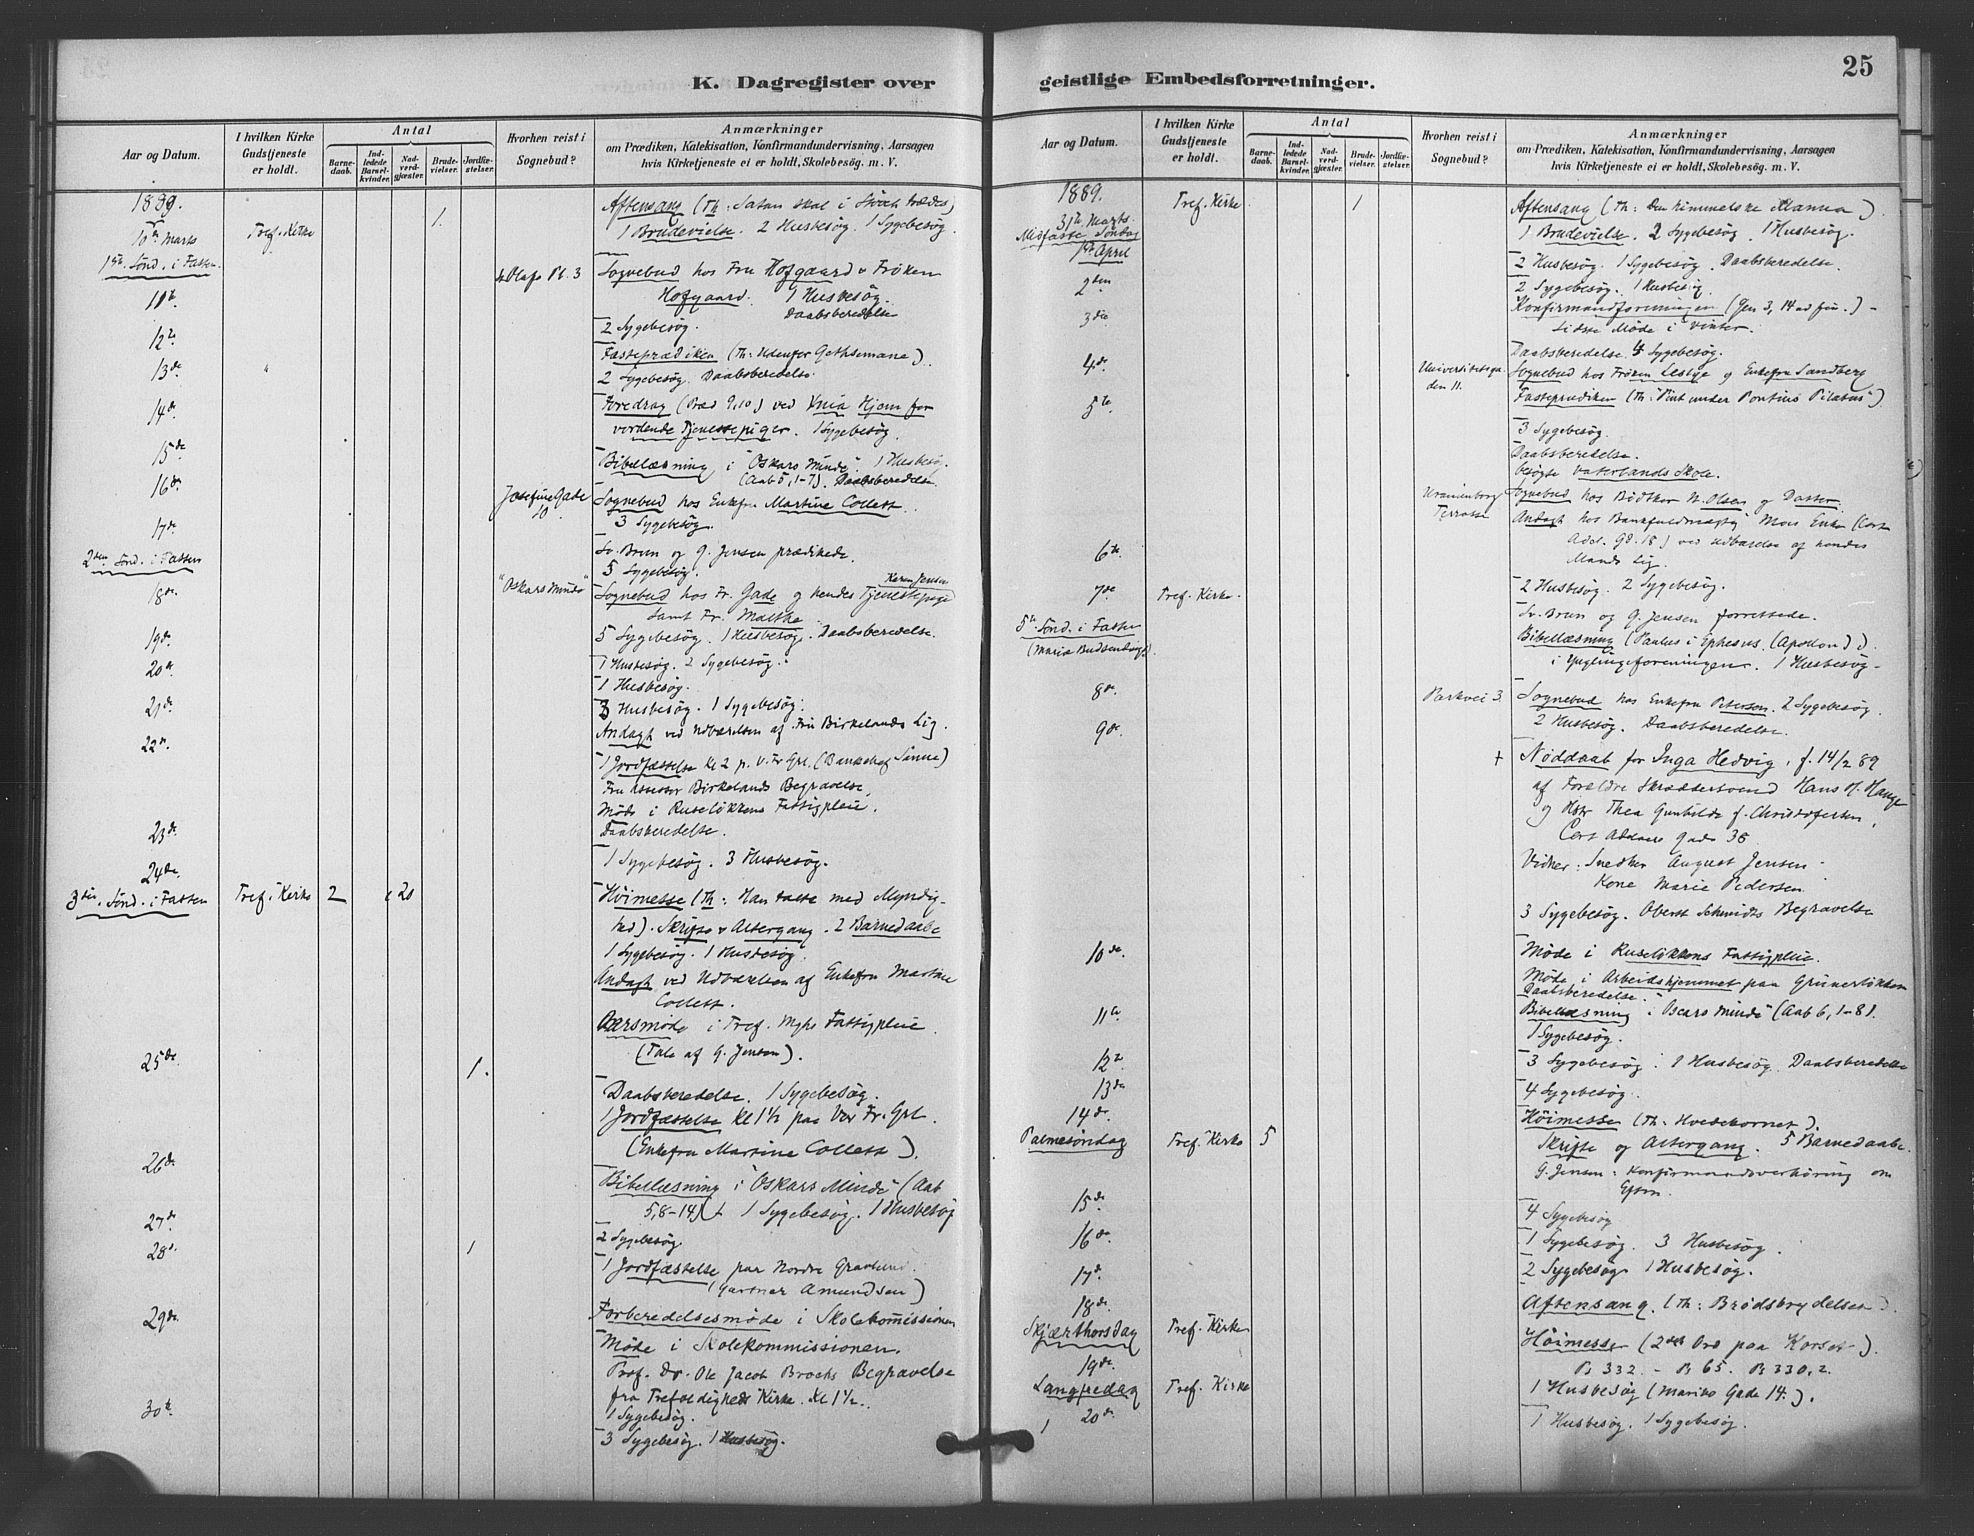 K. Dagregister over
Aar og Datum.
I hvilken Kirke Gudstjeneste er holdt.
Antal
Barnedaab.
Indledede Barselkvinder.
Nadverdgjæster.
Brudevielser.
Jordfæstelser.
Hvorhen reist i Sognebud?
Anmærkninger
om Prædiken, Katekisation, Konfirmandundervisning, Aarsagen
hvis Kirketjeneste ei er holdt, Skolebesøg. m. V.
1889.
10de Marts Tref. Kirke 1. Aftensang (Th: Satan skal i Støvet trædes)
1ste Sønd. i Fasten. 1 Brudevielse. 2 Husbesøg. 1 Sygebesøg.
11te St Olafs Pl. 3 Sognebud hos Fru Hofgaard & Frøken
Hofgaard. 1 Husbesøg.
Daabsberedelse
12te 2 Sygebesøg.
13de " Fasteprædiken (Th: Udenfor Gethsemane).
2 Sygebesøg. Daabsberedelse.
14de Foredrag (Præd 9,10) ved Hjem for
vordende Tjenestepiger. 1 Sygebesøg.
15de Bibellæsning i "Oskars Minde". 1 Husbesøg.
(Aab 5, 1-7). Daabsberedelse.
16de Josefine Gade 10 Sognebud hos Enkefru Martine Collett.
3 Sygebesøg.
17de
2den Sønd. i Fasten Sv. Brun og G. Jensen prædikede.
5 Sygebesøg.
Karen Jensen
18de "Oskars Minde" Sognebud hos Fr. Gade og hendes Tjenestepige
samt Fr. Malthe
19de 5 Sygebesøg. 1 Husbesøg. Daabsberedelse.
20de 1 Husbesøg. 2 Sygebesøg.
1 Husbesøg.
21de 3 Husbesøg. 1 Sygebesøg.
Andagt ved Udbærelsen af Fru Birkelands Lig.
22de 1 Jordfæstelse Kl 2 p. V. Fr Grl.
Fru Assessor Birkelands Begravelse.
Møde i Ruseløkkens Fattigpleie.
Daabsberedelse.
23de 1 Sygebesøg. 3 Husbesøg.
24de
3die Sønd. i Fasten Tref. Kirke 2 20 Høimesse (Th: Han talte med Myndig-
hed). Skrifte & Altergang. 2 Barnedaabe
1 Sygebesøg. 1 Husbesøg.
Andagt ved Udbærelsen af Enkefru Martine
Collett.
Aarsmøde i Tref. Mghs Fattigpleie.
(Tale af G. Jensen).
25de 1.
Daabsberedelse. 1 Sygebesøg.
1 Jordfæstelse Kl 1½ paa Vor Fr. Grl.
(Enkefru Martine Collett).
26de Bibellæsning i "Oskars Minde" (Aab
5, 8-14) 1 Sygebesøg. 1 Husbesøg
27de 2 Sygebesøg
28de 1 1 Jordfæstelse paa Nordre Gravlund.
(Gartner Amundsen)
29de Forberedelsesmøde i Skolekommissionen
Møde i Skolekommissionen.
Prof. Dr. Ole Jacob Brochs Begravelse
fra Trefoldigheds Kirke. Kl 1½.
30te 1 Sygebesøg.
3 Sygebesøg. 1 Husbesøg.
geistlige Embedsforretninger.
25
Aar og Datum.
I hvilken Kirke Gudstjeneste er holdt.
Antal
Barnedaab.
Indledede Barselkvinder.
Nadverdgjæster.
Brudevielser.
Jordfæstelser.
Hvorhen reist i Sognebud?
Anmærkninger
om Prædiken, Katekisation, Konfirmandundervisning, Aarsagen
hvis Kirketjeneste ei er holdt, Skolebesøg. m. V.
1889.
31te Marts Tref. Kirke 1 Aftensang (Th: Den himmelske Manna).
Midfaste Søndag 1 Brudevielse. 2 Sygebesøg. 1 Husbesøg.
1ste April 2 Husbesøg. 1 Sygebesøg. Daabsberedelse.
2den 2 Sygebesøg. 1 Husbesøg.
3die Konfirmandforeningen (Gen 3, 14 ad fin.) -
sidste Møde i Vinter.
4de Daabsberedelse. 4 Sygebesøg.
Universitetsgaden 11. Sognebud hos Frøken Leslye og Enkefru Sandberg
5te Fasteprædiken (Th: "Pint under Pontius Pilatus")
3 Sygebesøg.
Daabsberedelse.
besøgte Vaterlands Skole.
Uranienborg Terrasse Sognebud hos Bødtker N. Olsen og Datter.
Andagt hos Bankfuldmægtig Enke (Cort
Adel. Gd. 18.) ved Udbærelse af hendes
Mands Lig.
6te 2 Husbesøg. 2 Sygebesøg.
7de Tref. Kirke. Sv. Brun og G. Jensen forrettede.
5te Sønd. i Faste Bibellæsning (Paulus i Ephesus (Apollon)).
(Mariæ Budskabsdag). i Ynglingeforeningen. 1 Husbesøg.
8de Parkvei 3 Sognebud hos Enkefru Peterson. 2 Sygebesøg.
9de 2 Husbesøg. Daabsberedelse.
+ Nøddaab for Inga Hedvig, f. 14/2 89
af Forældre Skræddersvend Hans H. Hauge
og Hstr Thea Gunhilda f. Christofersen,
Cort Adelers Gade 36
Vidner: Snedker August Jensen
Kone Marie Pedersen
3 Sygebesøg. Oberst Schmidts Begravelse
10de Møde i Ruseløkkens Fattigpleie.
Møde i Arbeidshjemmet paa Grünerløkken
Daabsberedelse.
11te Bibellæsning i "Oscars Minde" (Aab 6, 1-8).
1 Sygebesøg.
12te 3 Sygebesøg. 1 Husbesøg. Daabsberedelse
13de 4 Sygebesøg.
14de Høimesse (Th: Hvedekornet).
Palmesøndag Tref. Kirke 5 Skrifte og Altergang. 5 Barnedaabe.
G. Jensen: Konfirmandoverhøring om
Eftm.
15de 4 Sygebesøg
16de 1 Sygebesøg. 3 Husbesøg.
17de 2 Sygebesøg 1 Husbesøg.
18de Aftensang. (Th: Brødsbrydelsen).
Skjærthorsdag Tref. Kirke Høimesse (2det Ord paa Korset).
19de Ps 332 - Ps 65. Ps 330,2.
Langfredag Tref. Kirke 1 Husbesøg (Gade 14.).
20de 1 Husbesøg. 1 Sygebesøg.